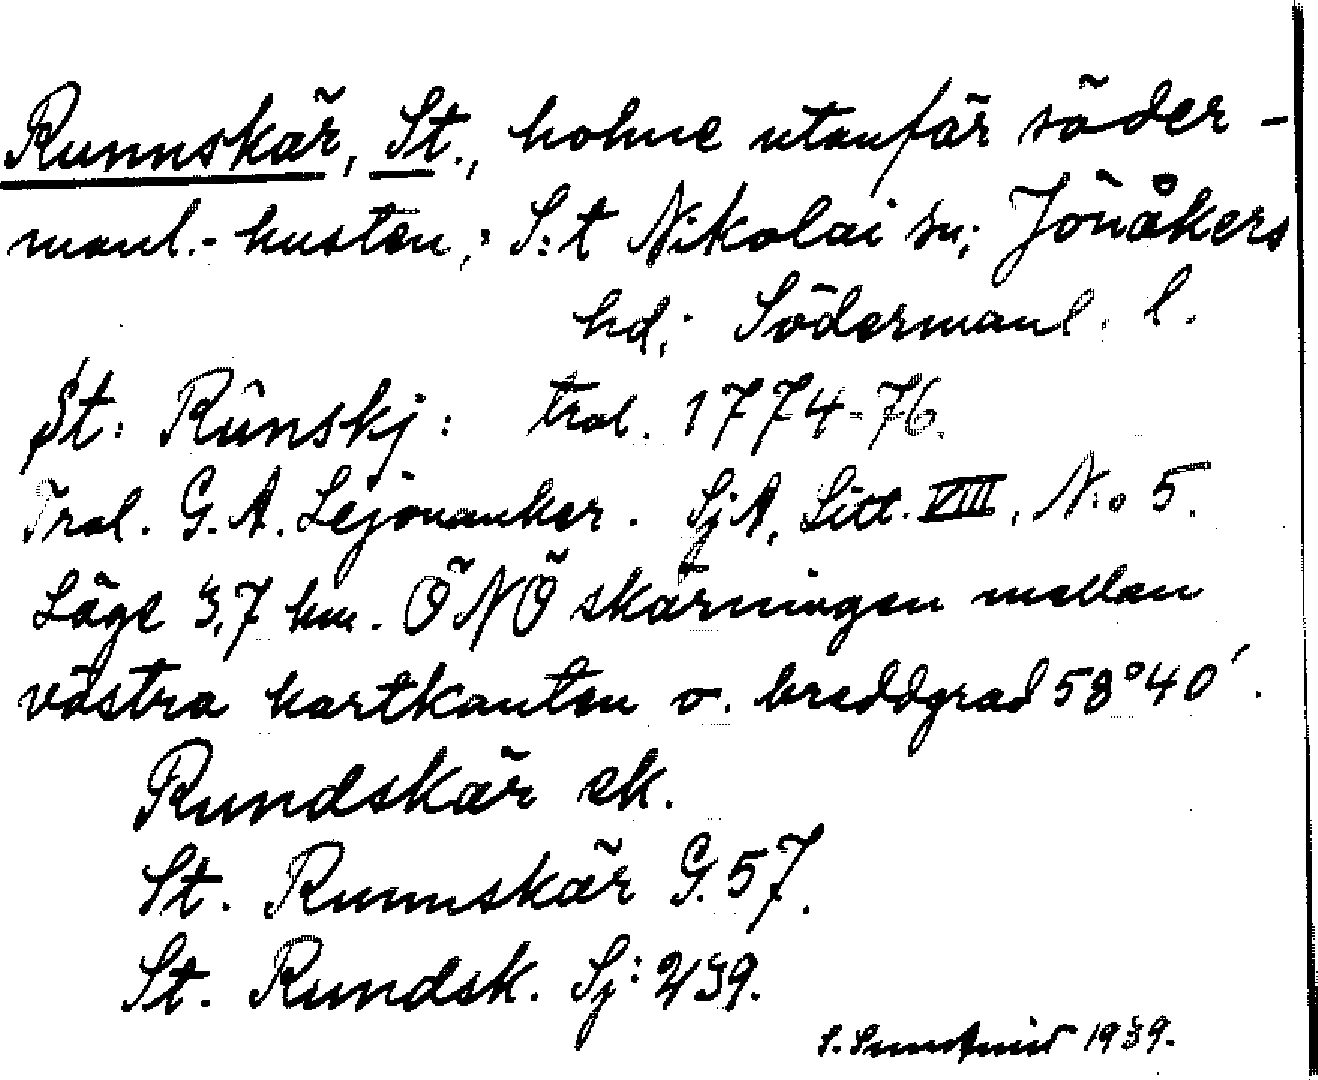 Runnskär, St., holme utanför söder-
manl.- kusten; S:t Nikolai sn; Jönåkers
hd; Södermanl. l.
St: Rûnskj: trol. 1774-76.
Trol. G. A. Lejonanker. SjA, Litt. VIII, N:o 5.
Läge 3,7 km. ÖNÖ skärningen mellan
västra kartkanten o. breddgrad 58°40'.
Rundskär ek.
St. Runnskär G. 57.
St. Rundsk. Sj: 239.
S. 1939.